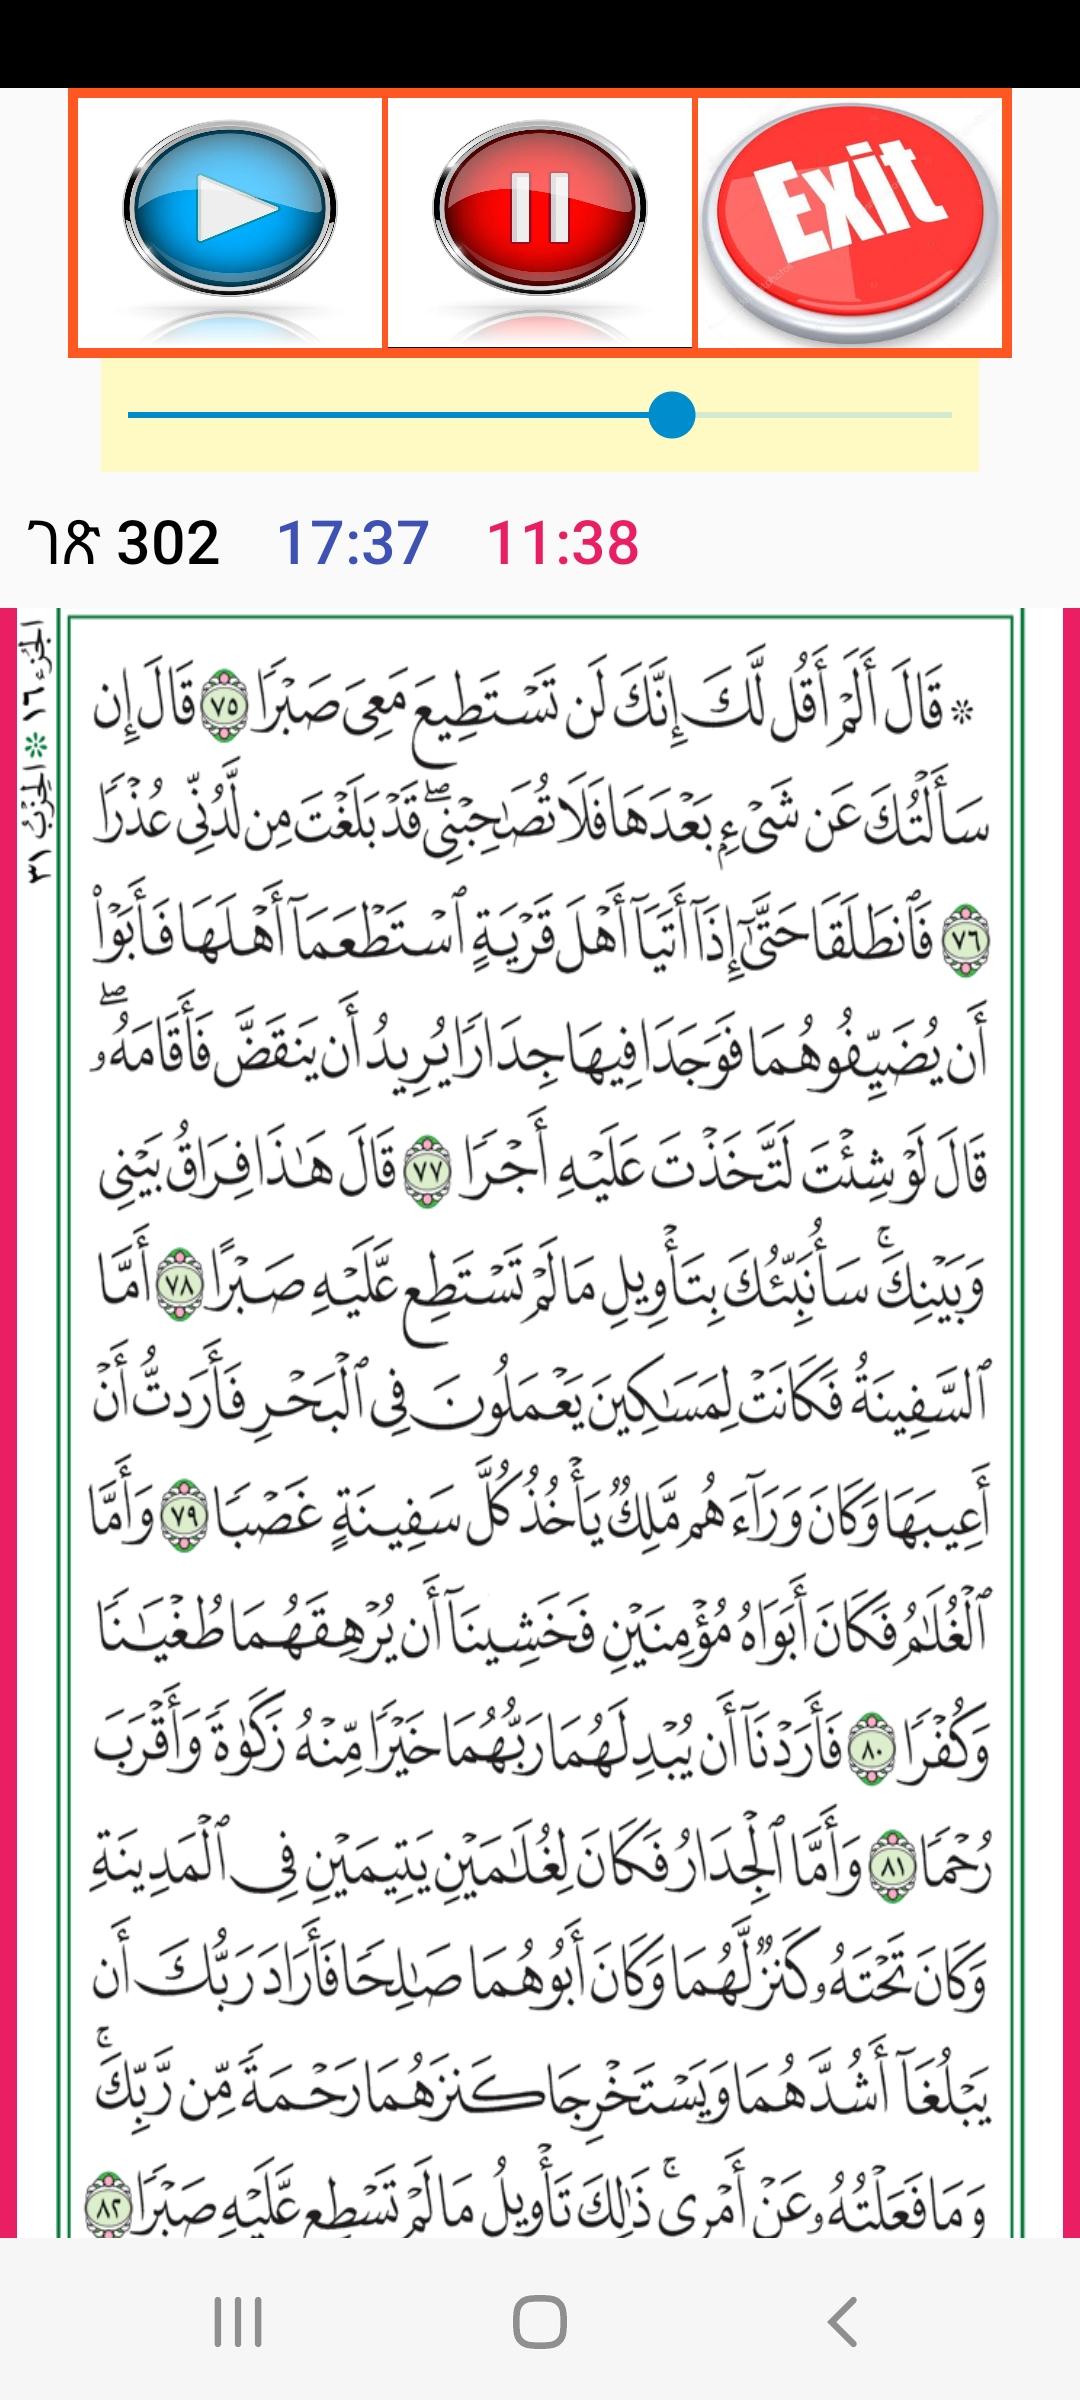 Exit
ገጽ 302 17:37 11:38
الجزء ١٦ * الحزب ٣١
* قَالَ أَلَمْ أَقُل لَّكَ إِنَّكَ لَن تَسْتَطِيعَ مَعِيَ صَبْرًا ٧٥ قَالَ إِن
سَأَلْتُكَ عَن شَيْءٍۭ بَعْدَهَا فَلَا تُصَٰحِبْنِيۖ قَدْ بَلَغْتَ مِن لَّدُنِّي عُذْرًا
٧٦ فَٱنطَلَقَا حَتَّىٰٓ إِذَآ أَتَيَآ أَهْلَ قَرْيَةٍ ٱسْتَطْعَمَآ أَهْلَهَا فَأَبَوْا۟
أَن يُضَيِّفُوهُمَا فَوَجَدَا فِيهَا جِدَارًا يُرِيدُ أَن يَنقَضَّ فَأَقَامَهُۥۖ
قَالَ لَوْ شِئْتَ لَتَّخَذْتَ عَلَيْهِ أَجْرًا ٧٧ قَالَ هَٰذَا فِرَاقُ بَيْنِي
وَبَيْنِكَۚ سَأُنَبِّئُكَ بِتَأْوِيلِ مَا لَمْ تَسْتَطِع عَّلَيْهِ صَبْرًا ٧٨ أَمَّا
ٱلسَّفِينَةُ فَكَانَتْ لِمَسَٰكِينَ يَعْمَلُونَ فِي ٱلْبَحْرِ فَأَرَدتُّ أَنْ
أَعِيبَهَا وَكَانَ وَرَآءَهُم مَّلِكٌ يَأْخُذُ كُلَّ سَفِينَةٍ غَصْبًا ٧٩ وَأَمَّا
ٱلْغُلَٰمُ فَكَانَ أَبَوَاهُ مُؤْمِنَيْنِ فَخَشِينَآ أَن يُرْهِقَهُمَا طُغْيَٰنًا
وَكُفْرًا ٨٠ فَأَرَدْنَآ أَن يُبْدِلَهُمَا رَبُّهُمَا خَيْرًا مِّنْهُ زَكَوٰةً وَأَقْرَبَ
رُحْمًا ٨١ وَأَمَّا ٱلْجِدَارُ فَكَانَ لِغُلَٰمَيْنِ يَتِيمَيْنِ فِي ٱلْمَدِينَةِ
وَكَانَ تَحْتَهُۥ كَنزٌ لَّهُمَا وَكَانَ أَبُوهُمَا صَٰلِحًا فَأَرَادَ رَبُّكَ أَن
يَبْلُغَآ أَشُدَّهُمَا وَيَسْتَخْرِجَا كَنزَهُمَا رَحْمَةً مِّن رَّبِّكَۚ
وَمَا فَعَلْتُهُۥ عَنْ أَمْرِيۚ ذَٰلِكَ تَأْوِيلُ مَا لَمْ تَسْطِع عَّلَيْهِ صَبْرًا ٨٢